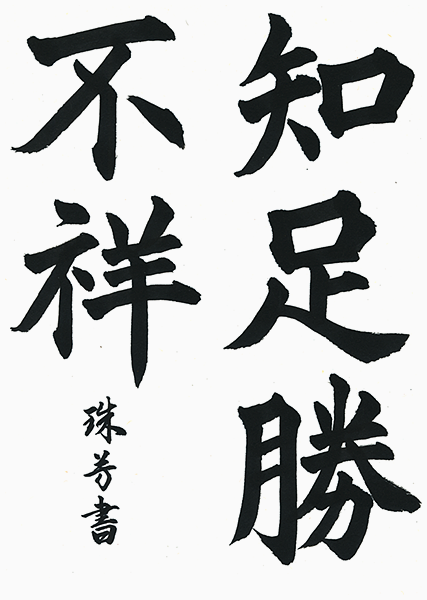 知足勝
不祥
珠芳書